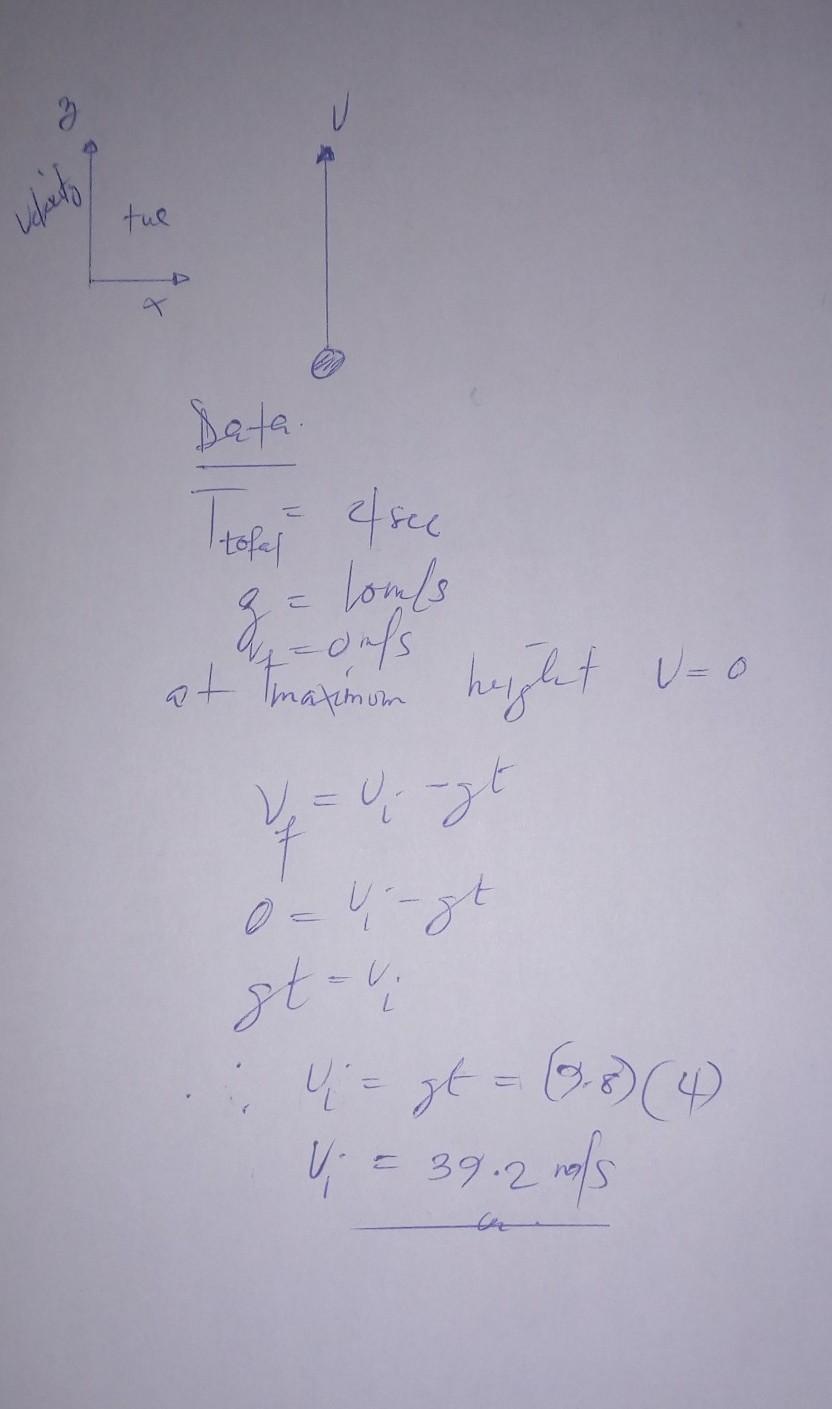 y
U
Velocity
+ve
x
Data.
T total = 4 sec
g = 10m/s
V f = 0 m/s
at maximum height V = 0
V f = U i - gt
0 = U i - gt
gt = U i
∴ U i = gt = (9.8)(4)
U i = 39.2 m/s